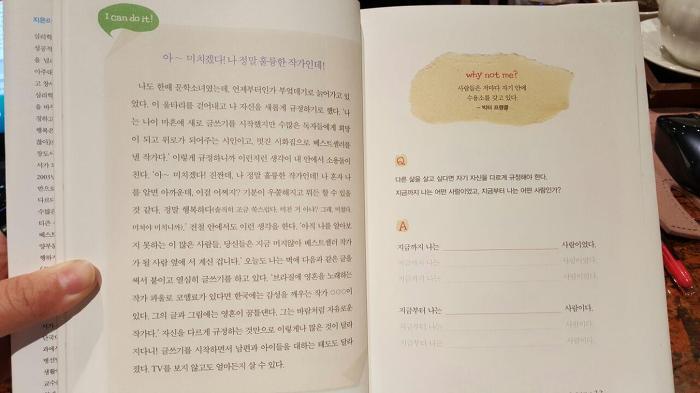 I can do it!
아~ 미치겠다! 나 정말 훌륭한 작가인데!
나도 한때 문학소녀였는데, 언제부터인가 부엌데기로 늙어가고 있
었다. 이 울타리를 걷어내고 나 자신을 새롭게 규정하기로 했다. '나
는 나이 마흔에 새로 글쓰기를 시작했지만 수많은 독자들에게 희망
이 되고 위로가 되어주는 시인이고, 멋진 시화집으로 베스트셀러를
낼 작가다.' 이렇게 규정하니까 이런저런 생각이 내 안에서 소용돌이
친다. '아~ 미치겠다! 진짠데, 나 정말 훌륭한 작가인데! 나 혼자 나
를 알면 아까운데, 이걸 어쩌지? 기분이 우쭐해지고 뭐든 할 수 있을
것 같다. 정말 행복하다(솔직히 조금 쑥스럽다. 미친 거 아냐? 그래, 미쳤다.
미쳐야 미치니까).' 전철 안에서도 이런 생각을 한다. '아직 나를 알아보
지 못하는 이 많은 사람들, 당신들은 지금 머지않아 베스트셀러 작가
가 될 사람 옆에 서 계신 겁니다.' 오늘도 나는 벽에 다음과 같은 글을
써서 붙이고 열심히 글쓰기를 하고 있다. '브라질에 영혼을 노래하는
작가 파울로 코엘료가 있다면 한국에는 감성을 깨우는 작가 ○○○이
있다. 그의 글과 그림에는 영혼이 꿈틀댄다. 그는 바람처럼 자유로운
작가다.' 자신을 다르게 규정하는 것만으로 이렇게나 많은 것이 달라
지다니! 글쓰기를 시작하면서 남편과 아이들을 대하는 태도도 달라
졌다. TV를 보지 않고도 얼마든지 살 수 있다.
why not me?
사람들은 저마다 자기 안에
수용소를 갖고 있다.
– 빅터 프랭클
Q
다른 삶을 살고 싶다면 자기 자신을 다르게 규정해야 한다.
지금까지 나는 어떤 사람이었고, 지금부터 나는 어떤 사람인가?
A
지금까지 나는 사람이었다.
지금까지 나는 사람이었다.
지금까지 나는 사람이었다.
지금부터 나는 사람이다.
지금부터 나는 사람이다.
지금부터 나는 사람이다.